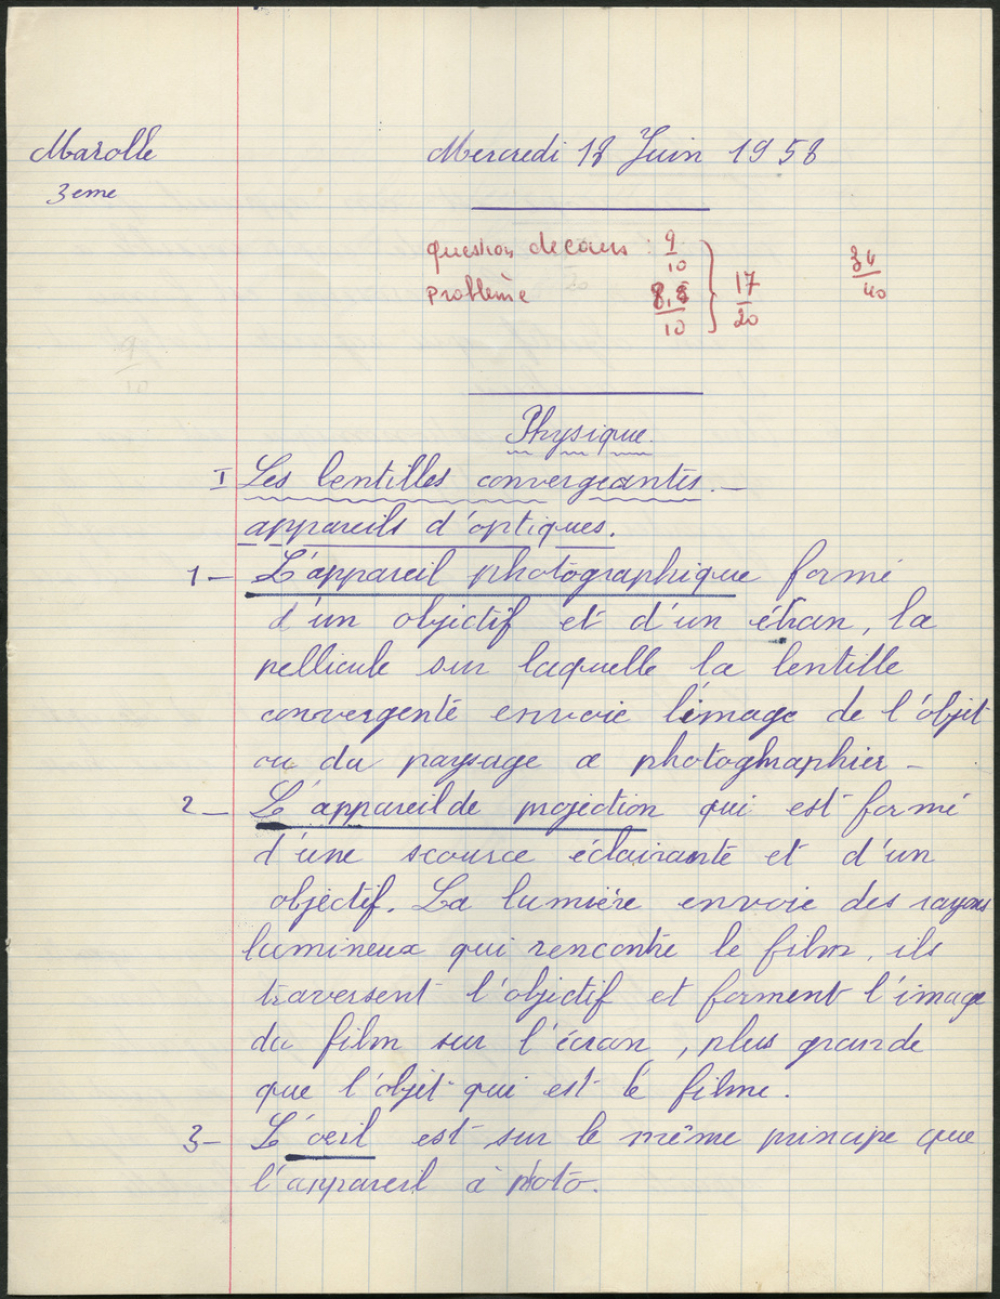 Marolle
Mercredi 18 Juin 1958
3eme
question de cours : 9/10
problème 8,5/10
17/20
34/40
Physique
I Les lentilles convergeantes. —
appareils d'optiques.
1 — L'appareil photographique formé
d'un objectif et d'un écran, la
pellicule sur laquelle la lentille
convergente envoie l'image de l'objet
ou du paysage a photographier —
2 — L'appareil de projection qui est formé
d'une scource éclairante et d'un
objectif. La lumière envoie des rayons
lumineux qui rencontre le film, ils
traversent l'objectif et forment l'image
du film sur l'écran, plus grande
que l'objet qui est le filme.
3 — L'oeil est sur le même principe que
l'appareil à photo.